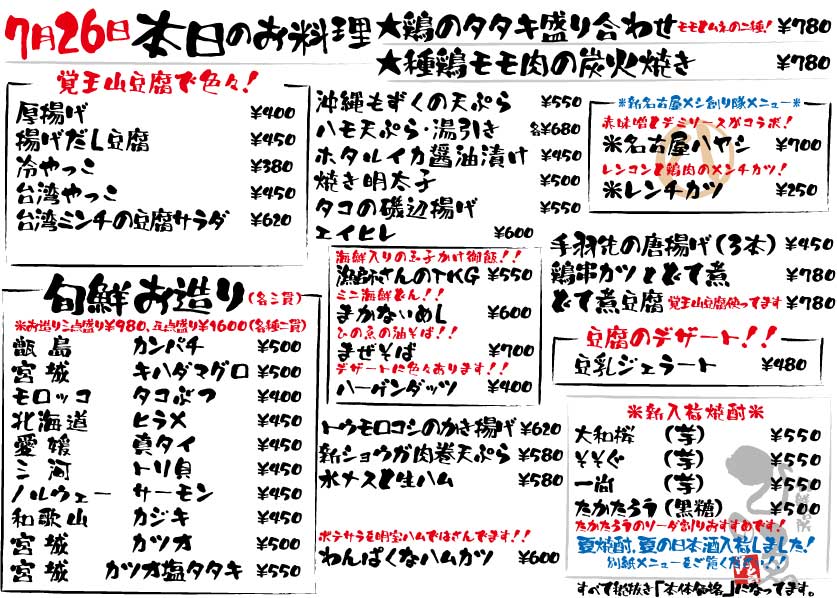 7月26日 本日のお料理
★鶏のタタキ盛り合わせ モモとムネの二種! ¥780
★種鶏モモ肉の炭火焼き ¥780
覚王山豆腐で色々!
厚揚げ ¥400
揚げだし豆腐 ¥450
冷やっこ ¥380
台湾やっこ ¥450
台湾ミンチの豆腐サラダ ¥620
旬鮮お造り(各三貫)
※お造り三点盛り¥980、五点盛り¥1600(各種二貫)
甑島 カンパチ ¥500
宮城 キハダマグロ ¥500
モロッコ タコぶつ ¥400
北海道 ヒラメ ¥450
愛媛 真タイ ¥450
三河 トリ貝 ¥450
ノルウェー サーモン ¥450
和歌山 カジキ ¥450
宮城 カツオ ¥500
宮城 カツオ塩タタキ ¥550
沖縄もずくの天ぷら ¥550
ハモ天ぷら・湯引き 各¥680
ホタルイカ醤油漬け ¥450
焼き明太子 ¥500
タコの磯辺揚げ ¥550
エイヒレ ¥600
海鮮入りの玉子かけ御飯!!
漁師さんのTKG ¥550
ミニ海鮮どん!!
まかないめし ¥600
ひの魚の油そば!!
まぜそば ¥700
デザートに色々あります!!
ハーゲンダッツ ¥400
トウモロコシのかき揚げ ¥620
新ショウガ肉巻天ぷら ¥580
水ナスと生ハム ¥580
ポテサラを明宝ハムではさんでます!!
わんぱくなハムカツ ¥600
※新名古屋メシ創り隊メニュー※
赤味噌とデミソースがコラボ!
※名古屋ハヤシ ¥700
レンコンと鶏肉のメンチカツ!
※レンチカツ ¥250
手羽先の唐揚げ(3本) ¥450
鶏串カツとどて煮 ¥780
どて煮豆腐 覚王山豆腐使ってます ¥780
豆腐のデザート!!
豆乳ジェラート ¥480
※新入荷焼酎※
大和桜 (芋) ¥550
そそぐ (芋) ¥550
一尚 (芋) ¥550
たかたろう(黒糖) ¥550
たかたろうのソーダ割りおすすめです!
夏焼酎、夏の日本酒入荷しました!
別紙メニューをご覧ください!!
すべて税抜き「本体価格」になってます。